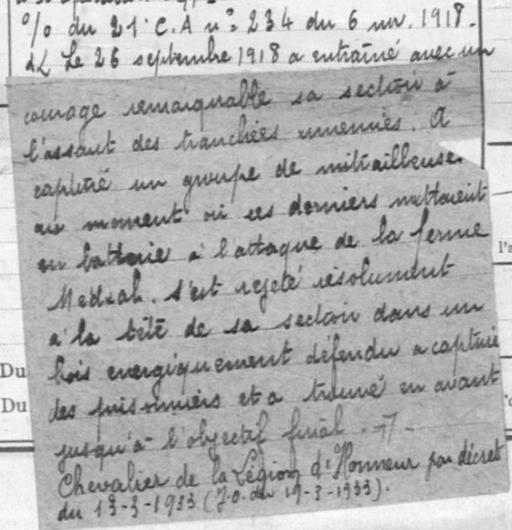 o/o du 21e C.A n° 234 du 6 nov. 1918.
Le 26 septembre 1918 a entraîné avec un
courage remarquable sa section à
l'assaut des tranchées ennemies. A
capturé un groupe de mitrailleuse
au moment où ces derniers mettaient
en batterie à l'attaque de la ferme
Medeah. s'est rejeté résolument
à la tête de sa section dans un
bois énergiquement défendu a capturé
des prisonniers et a trouvé en avant
jusqu'à l'objectif final.
Chevalier de la Légion d'Honneur par décret
du 13-3-1933 (J.O. du 19-3-1933).
l'a
Du
Du